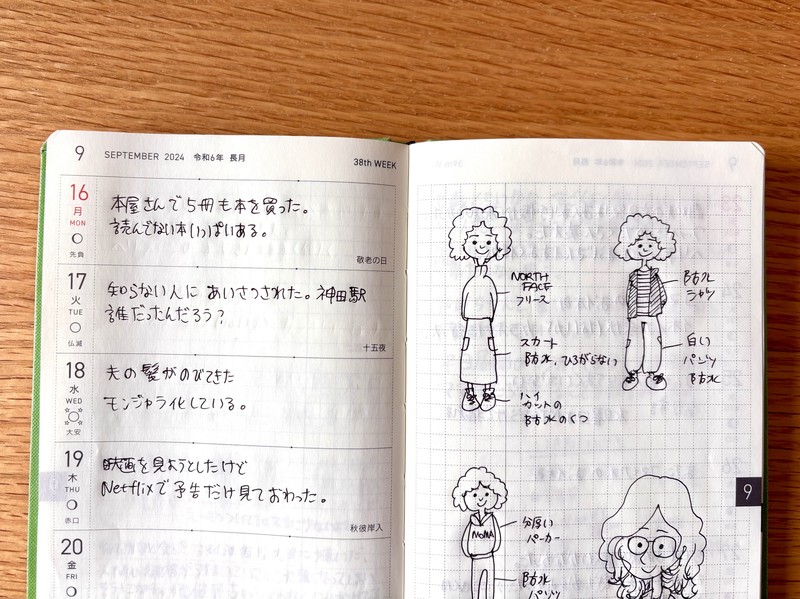 9 SEPTEMBER 2024 令和6年 長月 38th WEEK
16
月
MON
先負
本屋さんで5冊も本を買った。
読んでない本いっぱいある。
敬老の日
17
火
TUE
仏滅
知らない人にあいさつされた。神田駅
誰だったんだろう?
十五夜
18
水
WED
大安
夫の髪がのびてきた
モンジャラ化している。
19
木
THU
赤口
映画を見ようとしたけど
Netflixで予告だけ見ておわった。
秋彼岸入
20
金
FRI
NORTH
FACE
フリース
スカート
防水、ひろがらない
ハイ
カットの
防水のくつ
防水
シャツ
白い
パンツ
防水
9
分厚い
パーカー
MoMA
防水
パンツ